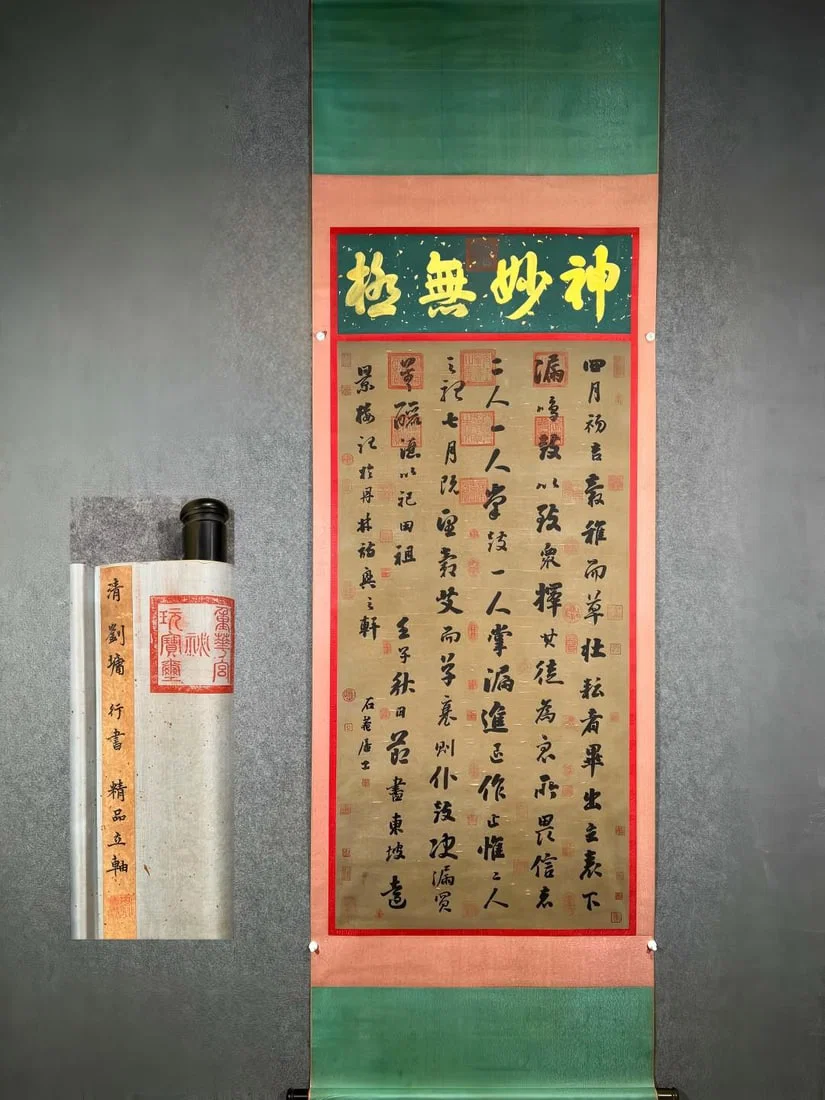 神妙無極
四月初吉穀稚而草壯耘者畢出立表下
漏鳴鼓以致眾擇其徒為眾所畏信者
二人一人掌鼓一人掌漏進退作止惟二人
之聽七月既望穀艾而草衰則仆鼓決漏買
羊以祀田祖 壬子秋日節書東坡遠
景樓記於丹林詩興之軒
石菴居士
清 劉墉 行書 精品立軸
重華宮祕玩寶璽